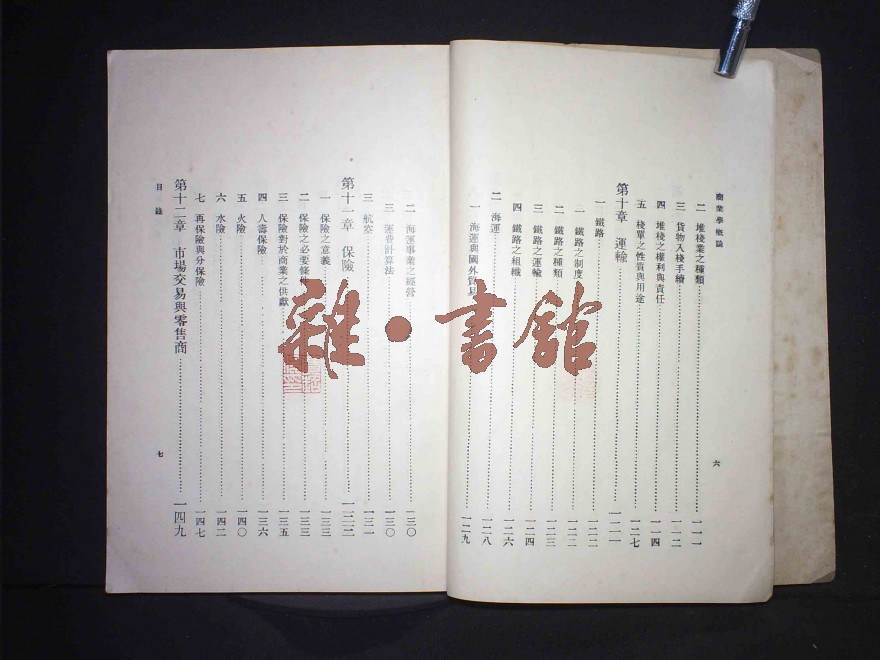 商業學概論
二 堆棧業之種類 一一一
三 貨物入棧手續 一一二
四 堆棧之權利與責任 一一四
五 棧單之性質與用途 一一七
第十章 運輸
一 鐵路 一二二
一 鐵路之制度 一二二
二 鐵路之種類 一二三
三 鐵路之運輸 一二四
四 鐵路之組織 一二六
二 海運 一二八
一 海運與國外貿易 一二九
六
二 海運事業之經營 一三〇
三 運費計算法 一三〇
三 航空 一三一
第十一章 保險
一 保險之意義 一三三
二 保險之必要條件 一三三
三 保險對於商業之供獻 一三五
四 人壽保險 一三六
五 火險 一四〇
六 水險 一四二
七 再保險與分保險 一四七
第十二章 市場交易與零售商 一四九
目錄
七
雜·書館